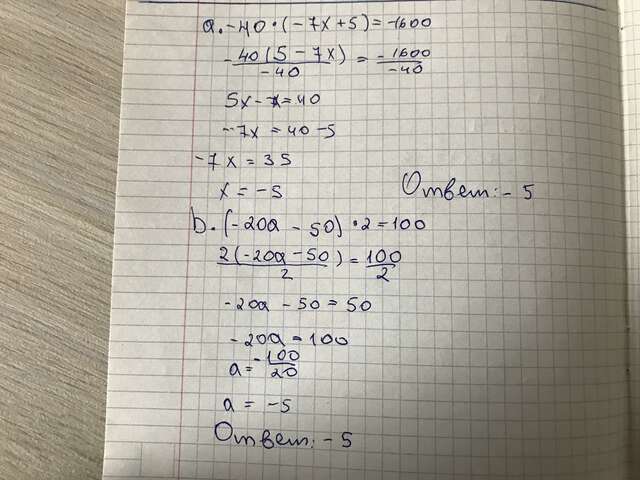 a. -40 · (-7x + 5) = -1600
-40(5 - 7x)/-40 = -1600/-40
5x - x = 40
-7x = 40 - 5
-7x = 35
x = -5
Ответ: -5
b. (-20a - 50) · 2 = 100
2(-20a - 50)/2 = 100/2
-20a - 50 = 50
-20a = 100
a = -100/20
a = -5
Ответ: -5